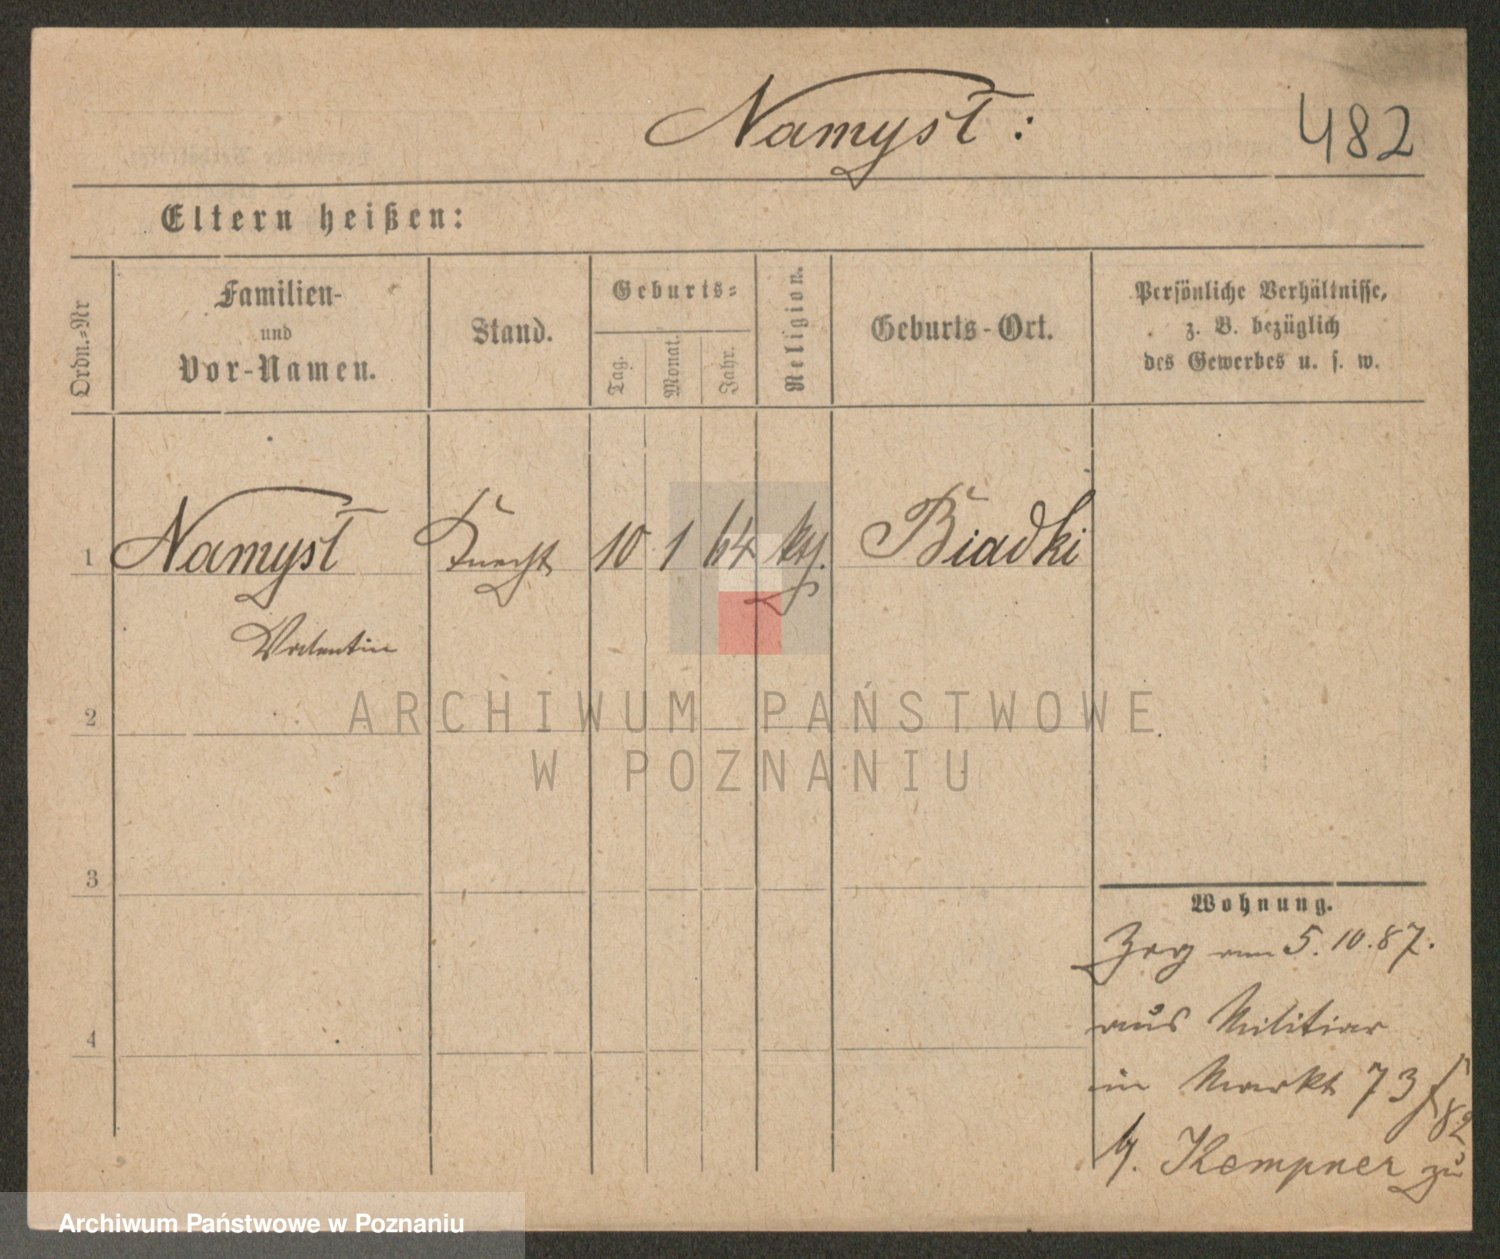 Namysł:
482
Eltern heißen:
Ordn.-Nr
Familien-
und
Vor-Namen.
Stand.
Geburts-
Tag.
Monat.
Jahr.
Religion.
Geburts-Ort.
Persönliche Verhältnisse,
z. B. bezüglich
des Gewerbes u. s. w.
1 Namysł Knecht 10 1 64 kth. Biadki
Valentin
2
ARCHIWUM PAŃSTWOWE
W POZNANIU
3
Wohnung.
Zog am 5.10.87.
aus Militiar
4
in Markt 73
82
Kempner zu
Archiwum Państwowe w Poznaniu